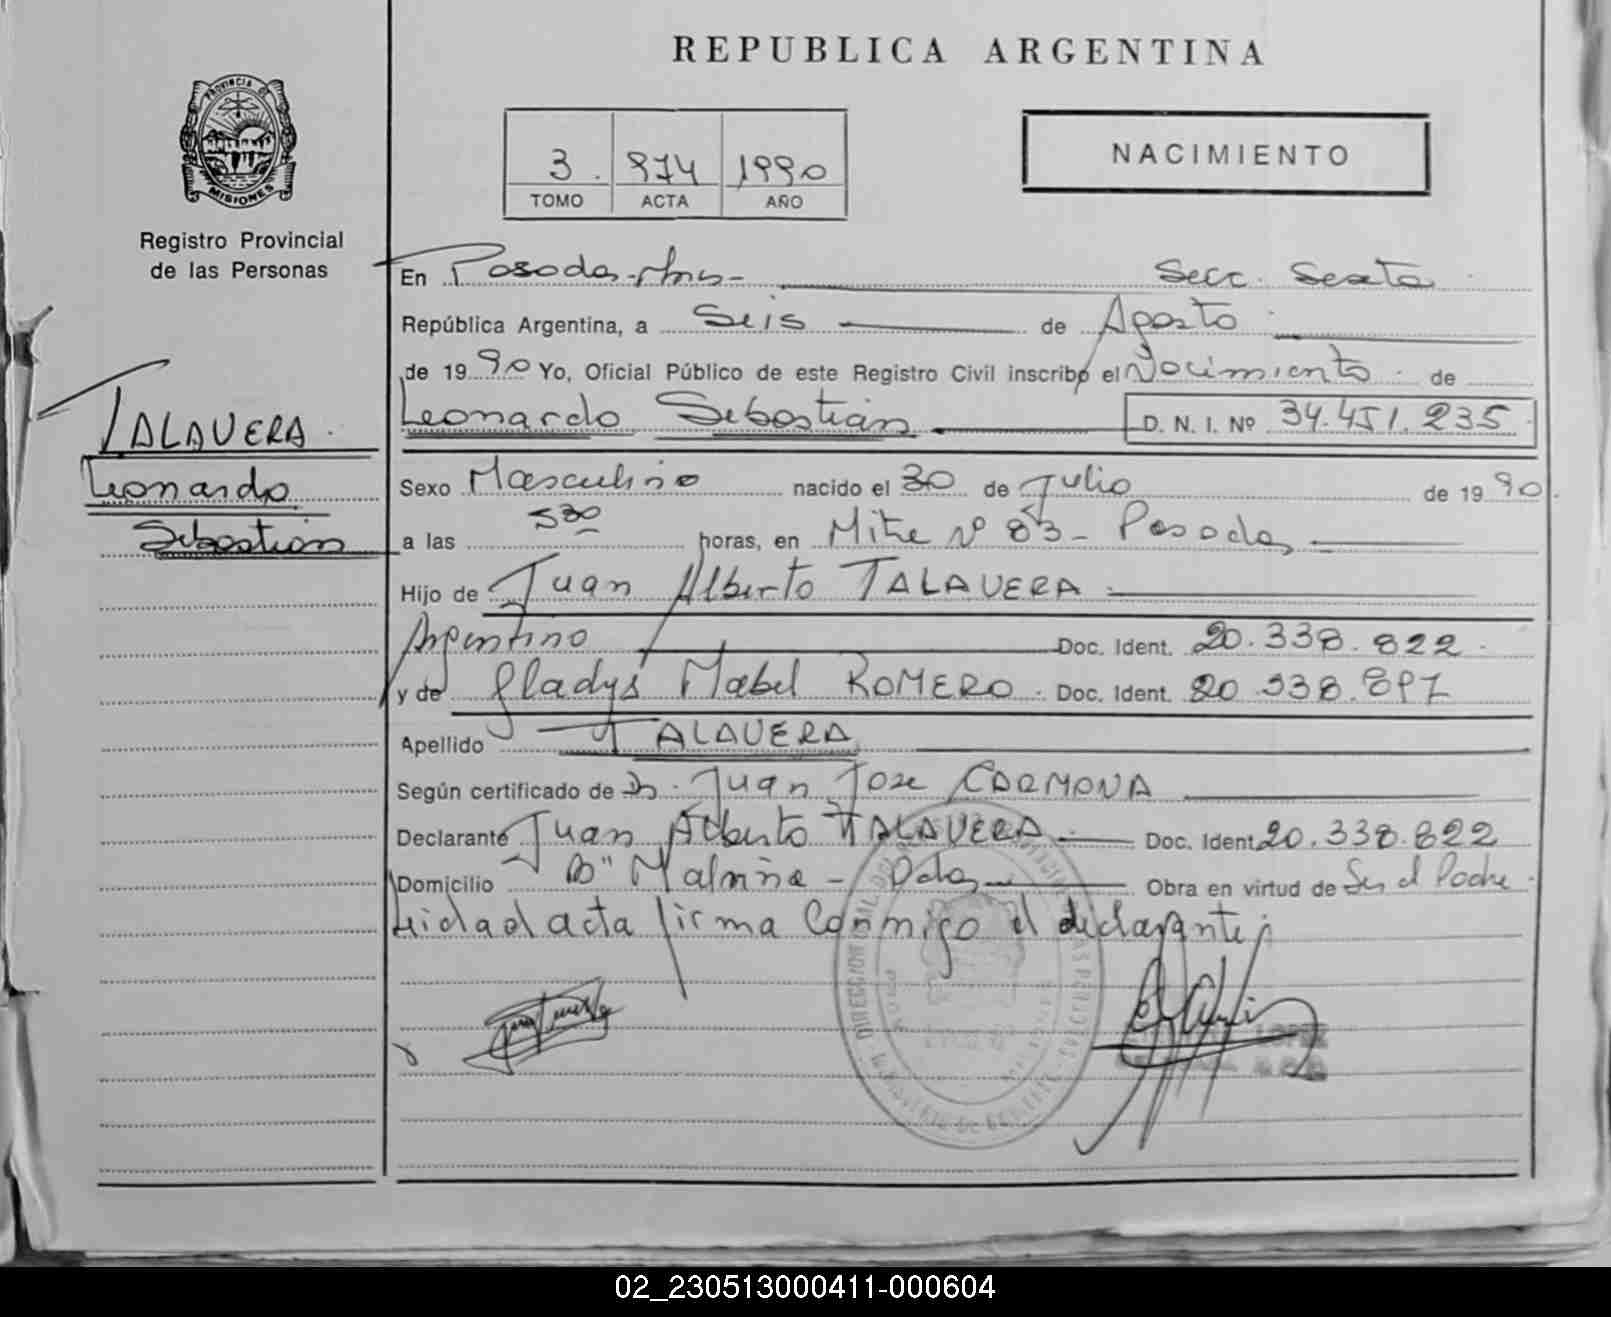 REPUBLICA ARGENTINA
PROVINCIA DE
MISIONES
Registro Provincial
de las Personas
3. 974 1990
TOMO ACTA AÑO
NACIMIENTO
En Posadas-Mnes- Secc. Sexta
República Argentina, a Seis de Agosto
de 1990 Yo, Oficial Público de este Registro Civil inscribo el Nacimiento de
Leonardo Sebastián D. N. I. Nº 34.451.235
TALAVERA
Leonardo
Sebastián
Sexo Masculino nacido el 30 de Julio de 1990.
a las 530 horas, en Mitre Nº 83- Posadas
Hijo de Juan Alberto TALAVERA
Argentino Doc. Ident. 20.338.822.
y de Gladys Mabel ROMERO. Doc. Ident. 20.338.897
Apellido TALAVERA
Según certificado de Dr. Juan Jose CARMONA
Declarante Juan Alberto TALAVERA Doc. Ident. 20.338.822
Domicilio Bº Malvina - Pdas Obra en virtud de Ser el Padre.
Leida el acta firma conmigo el declarante;
LOPEZ
02_230513000411-000604